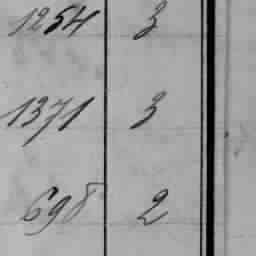 1254 3
1371 3
698 2